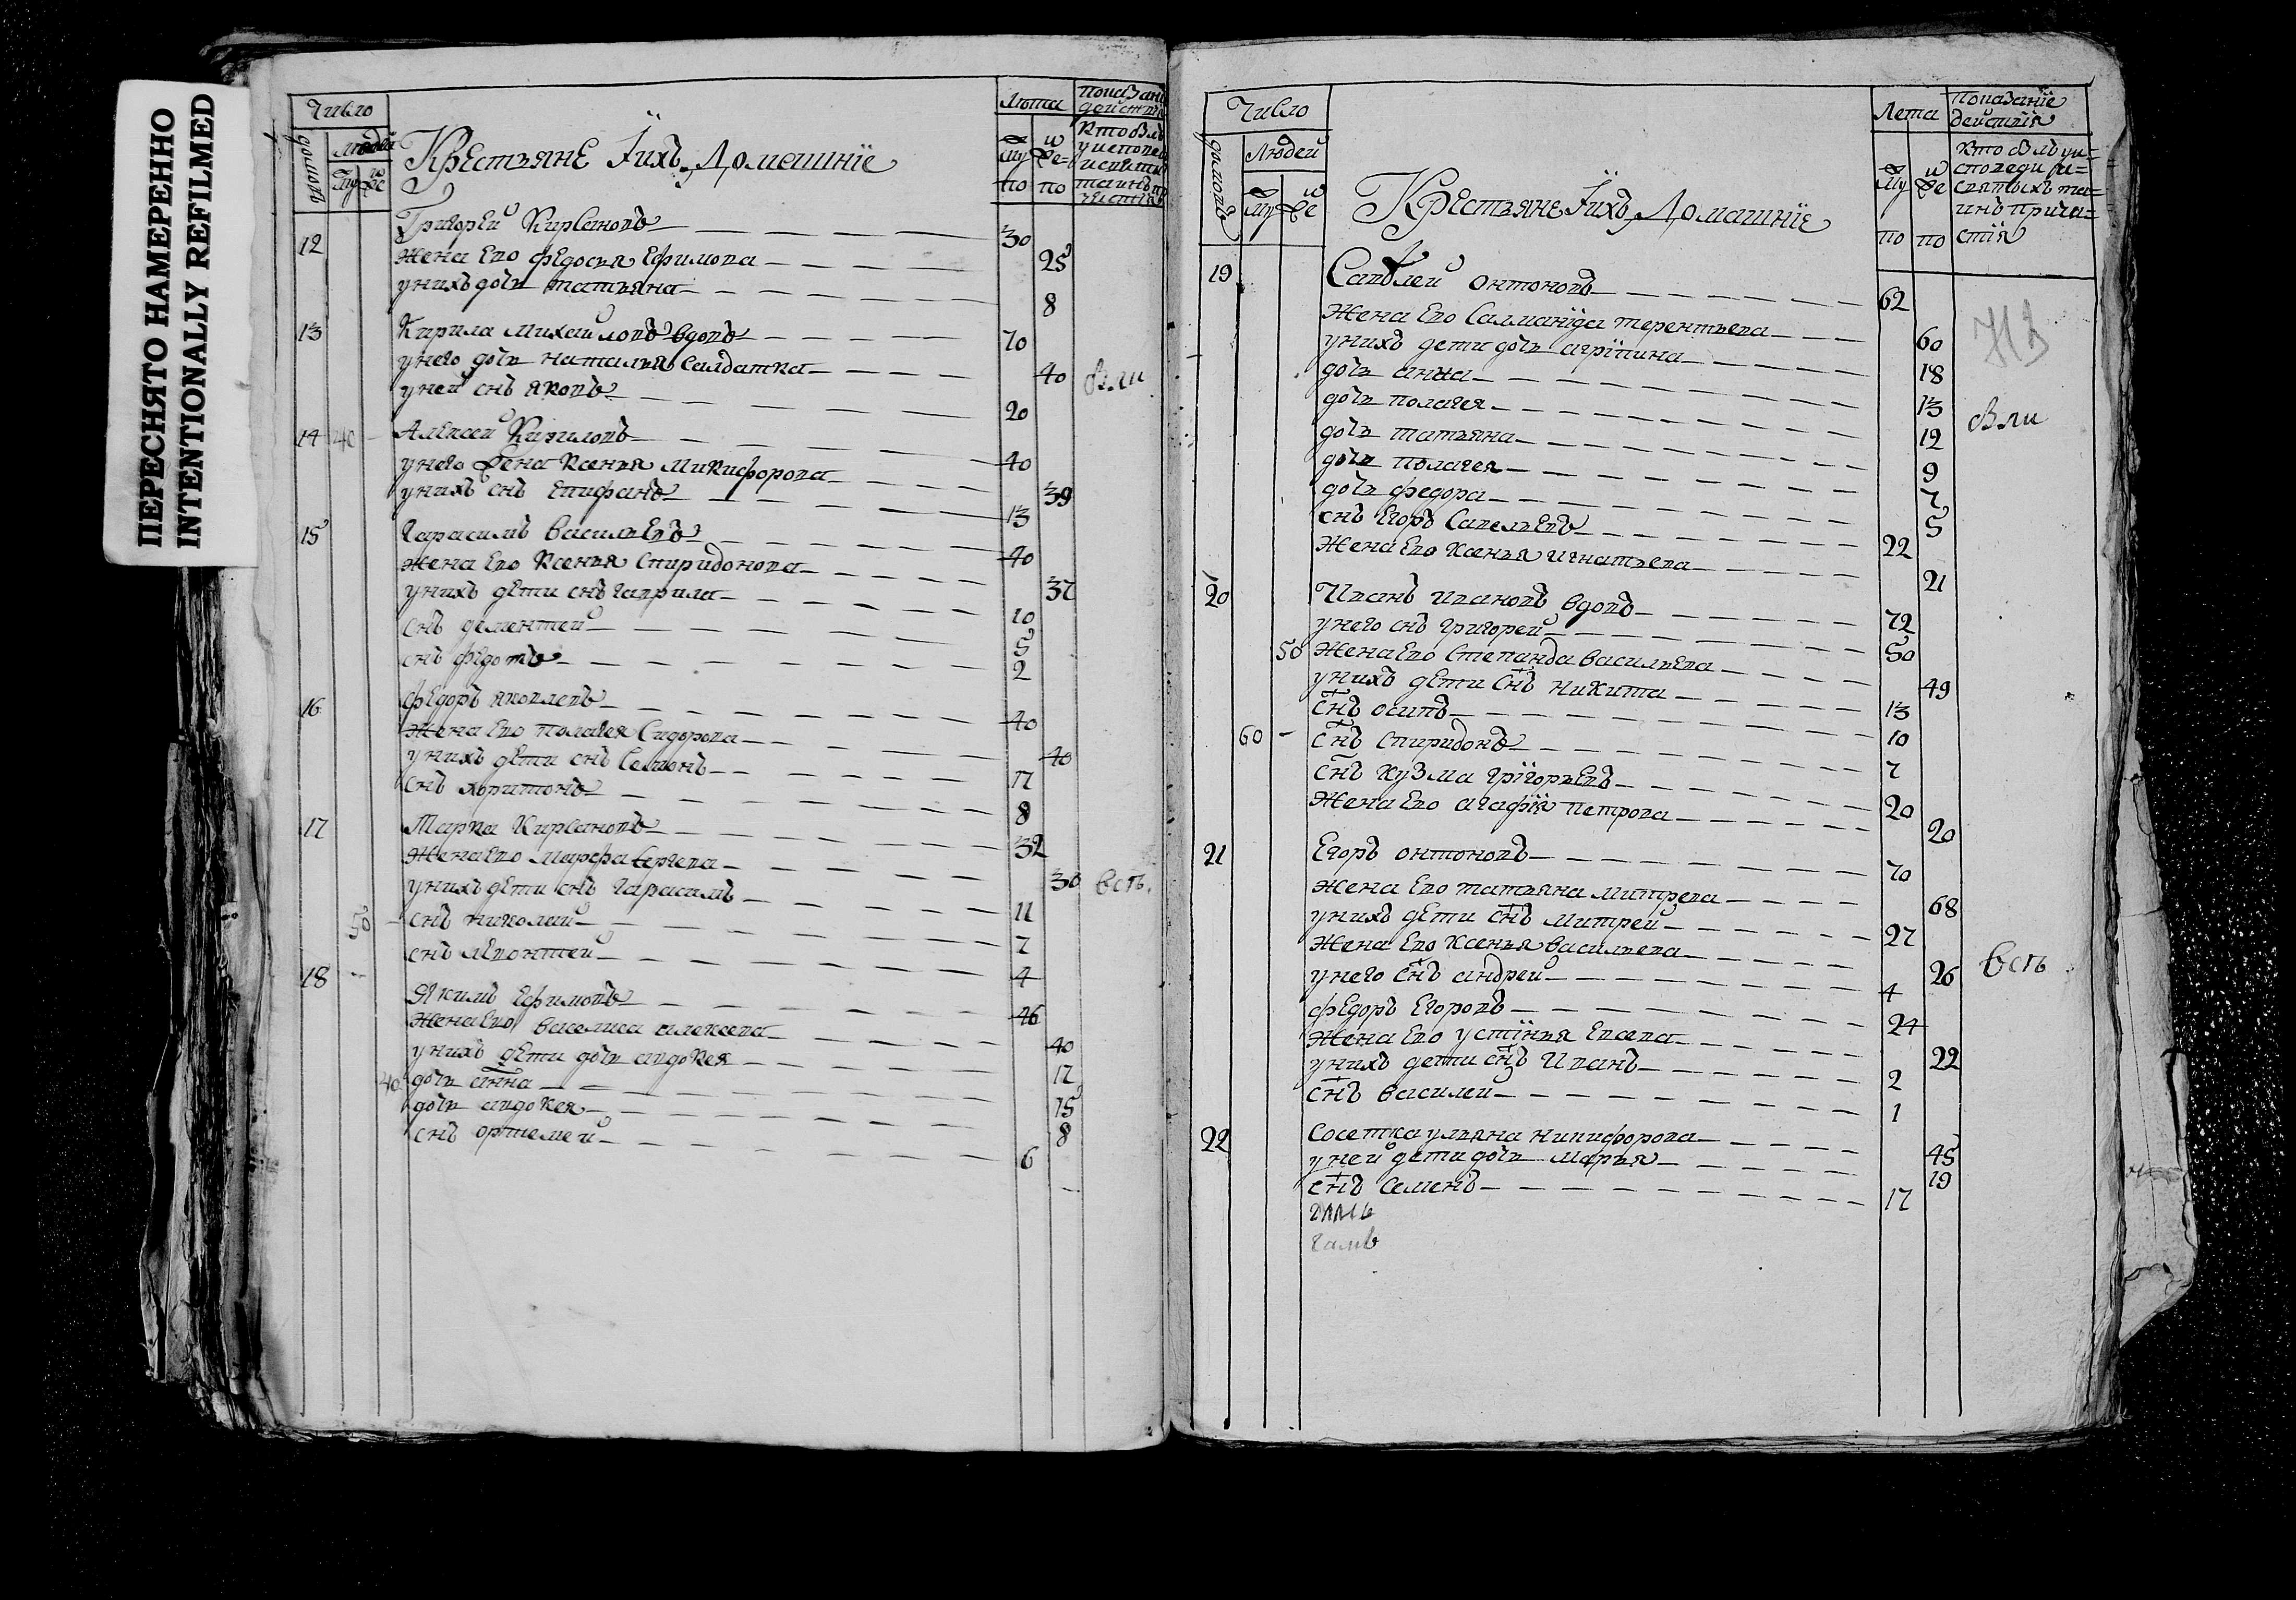 ПЕРЕСНЯТО НАМЕРЕННО
INTENTIONALLY REFILMED
Число
домовъ
Людей
Му
Же
Крестьяне Їихъ Домашнїе
Лѣта
Му Же=
по по
12 Григорей Кирсановъ 30
жена ево Федосья Ефимова 25
унихъ дочь татьяна 8
13 Кирила михайловъ вдовъ 70
унего дочь наталья Салдатка 40
уней снъ яковъ 20
были
14 40 Алексей Кириловъ 40
унего жена Ксенья Микифорова 39
унихъ снъ Епифанъ 13
15 Гарасимъ васильевъ 40
жена ево Ксенья Спиридонова 37
унихъ дети снъ гаврила 10
снъ дементей 5
снъ федотъ 2
16 федоръ яковлевъ 40
жена ево полагея Сидорова 40
унихъ дети снъ Семонъ 17
снъ харитонъ 8
17 Марка Кирсановъ 32
жена ево марфа Сергева 30
унихъ дети снъ гарасимъ 11
50 снъ николай 7
снъ левонтей 4
18 Якимъ Ефимовъ 46
жена ево василиса алексеева 40
унихъ дети дочь авдокея 17
40 дочь анна 15
дочь авдокея 8
снъ ортемей 6
Число
домовъ
Людей
Му Же
Крестьяне Їихъ Домашнїе
Лета
Му Же
по по
Показанїе
действїя
Кто былъ уи=
споведи и=
святыхъ та=
инъ прича=
стїя
19 Савѣлей онтоновъ 62
жена ево Салманїда терентьева 60
унихъ дети дочь агрїпина 18
дочь анна 13
дочь полагея 12
дочь татьяна 9
дочь полагея 7
дочь федора 5
снъ Егоръ Савельевъ 22
жена ево ксенья игнатьева 21
были
20 Иванъ ивановъ вдовъ 72
унего снъ григорей 50
50 жена ево Степанида васильева 49
унихъ дети снъ никита 13
снъ осипъ 10
60 снъ спиридонъ 7
снъ кузма грїгорьевъ 20
жена ево агафїя петрова 20
21 Егоръ онтоновъ 70
жена ево татьяна митрева 68
унихъ дети снъ митрей 27
жена ево ксенья васильева 26
унего снъ андрей 4
федоръ Егоровъ 24
жена ево устїнья
22
унихъ дети снъ Иванъ 2
снъ василей 1
22 Сосетка ульяна никифорова 45
уней дети дочь марья 19
снъ семенъ 17